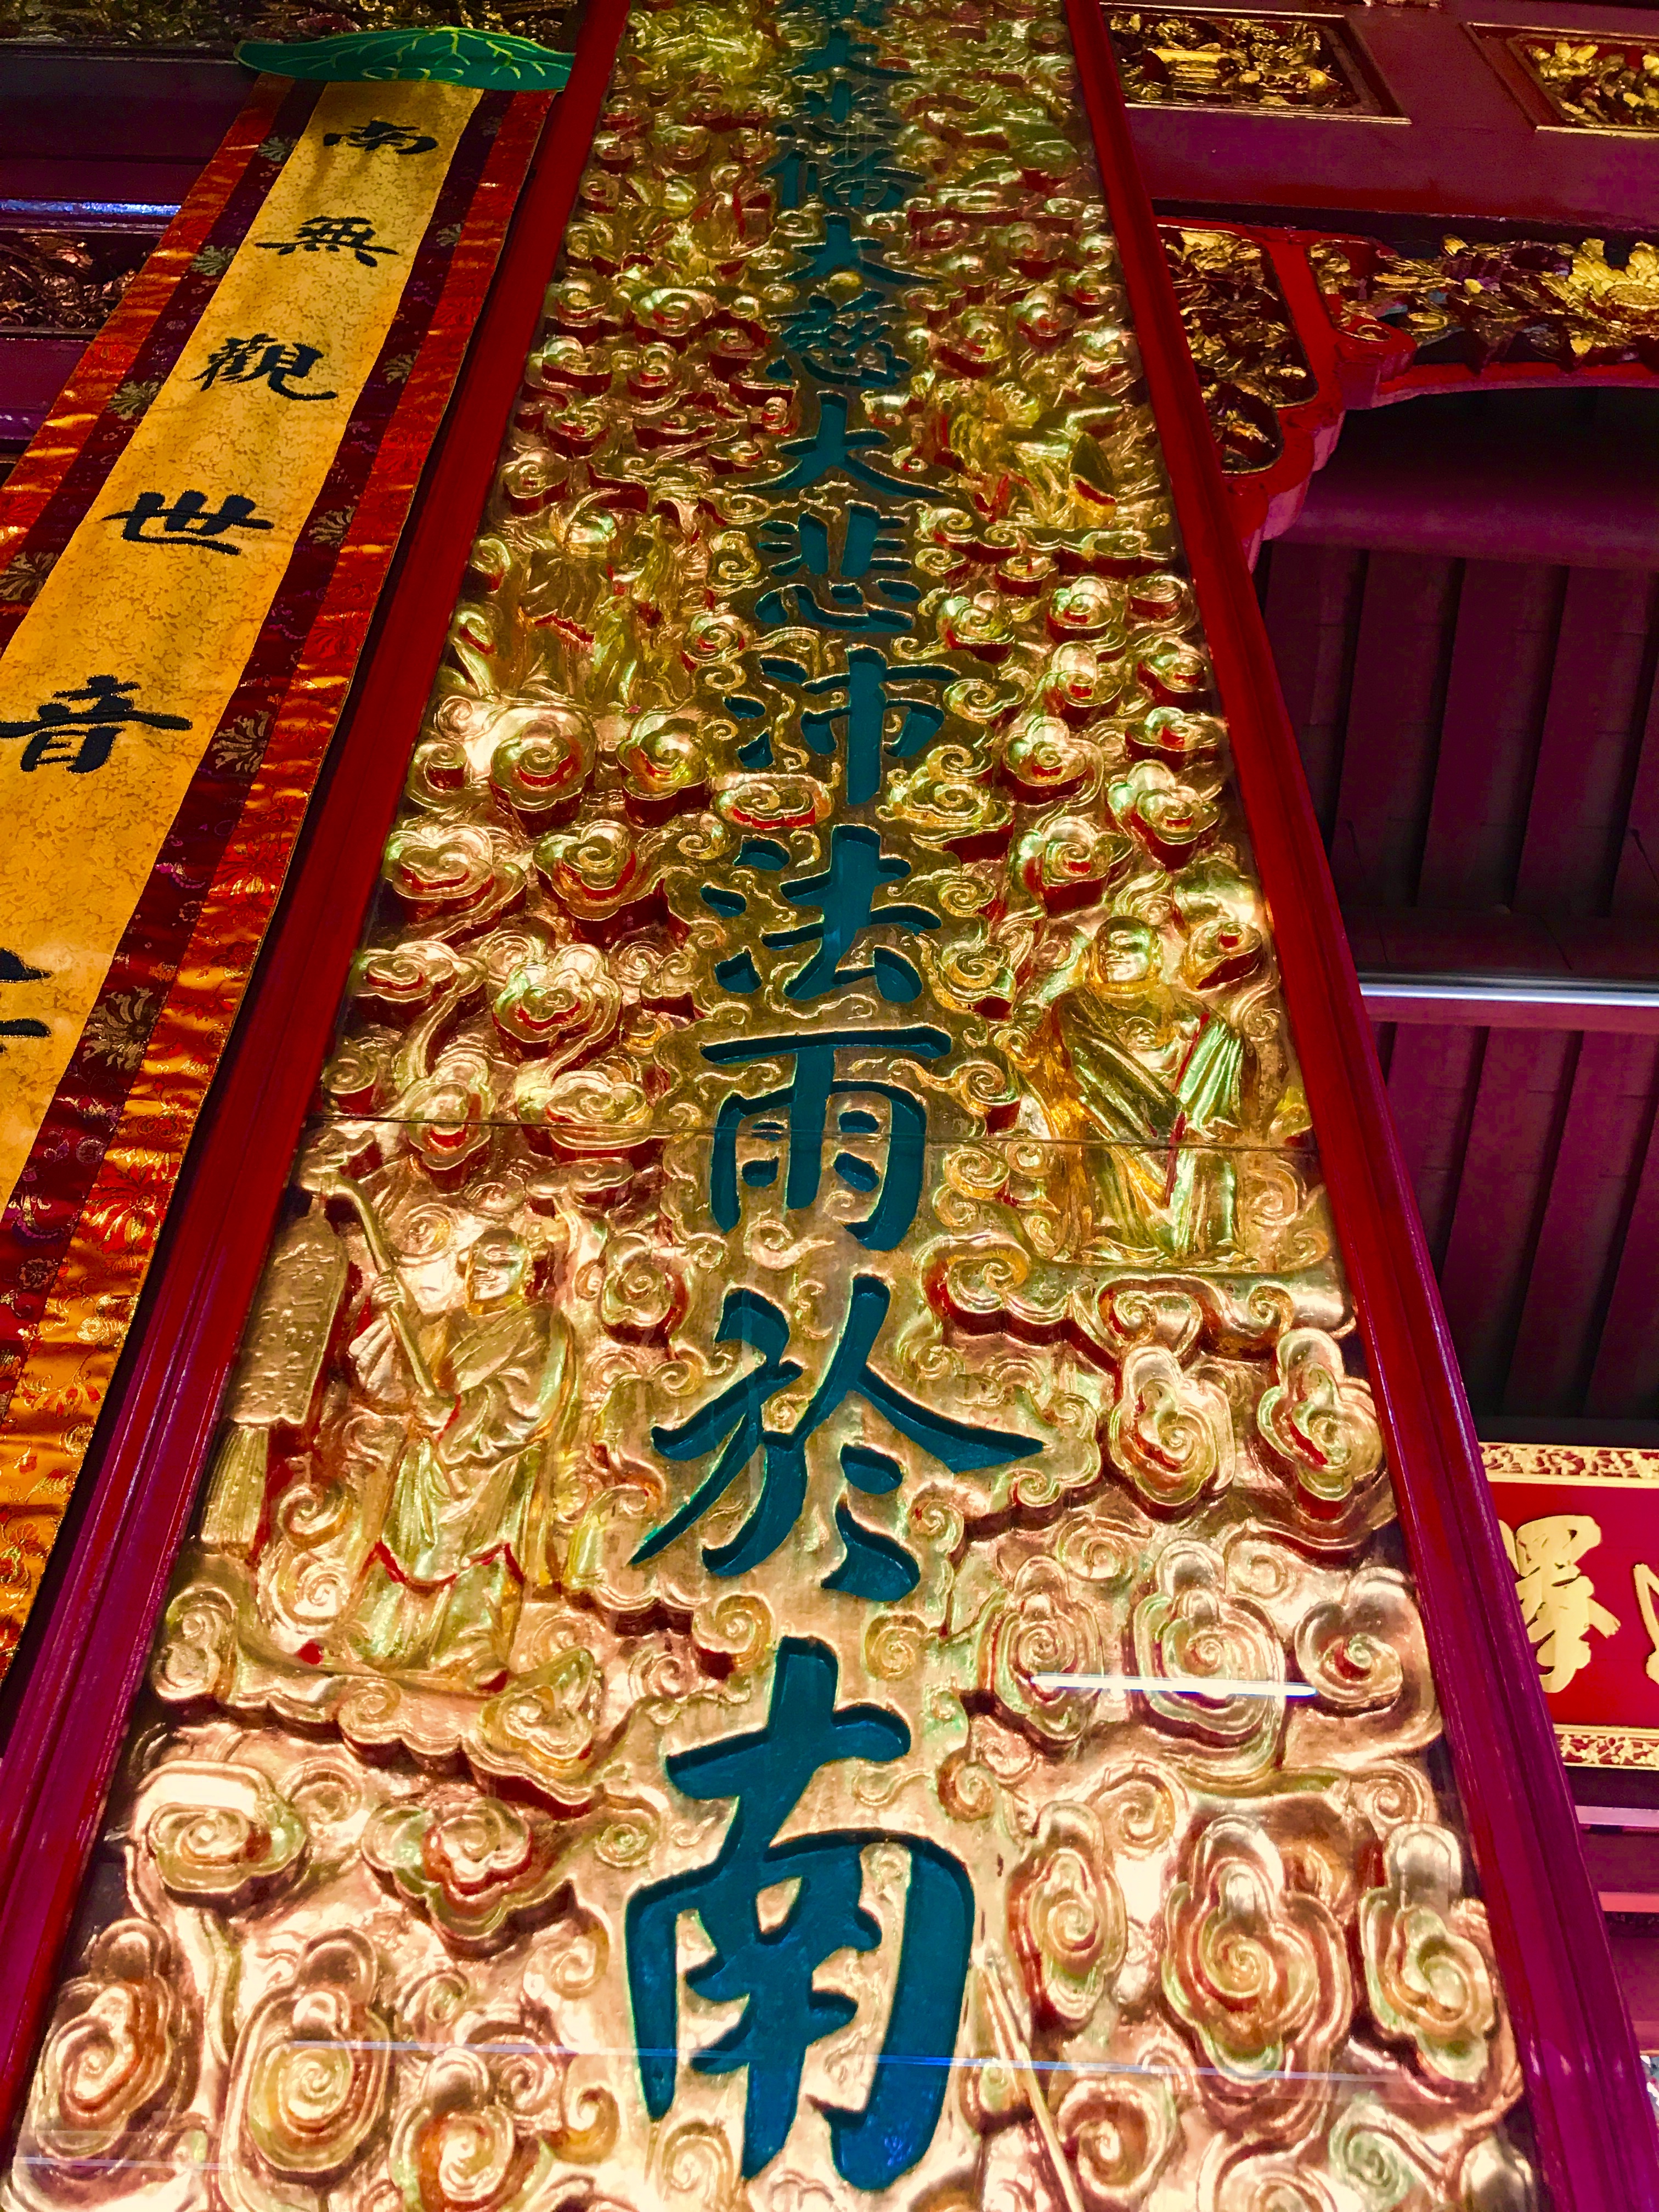 南無觀世音
備大慈大悲沛法雨於南
澤